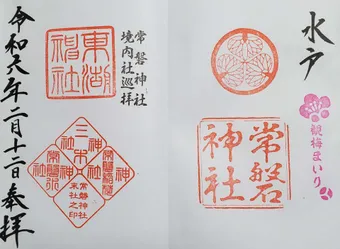 水戸
観梅まいり
常磐
神社
常磐神社
境内社巡拝
東湖
神社
三木
神社
常磐稲荷
神社
常磐神社
末社之印
令和六年二月十二日奉拝